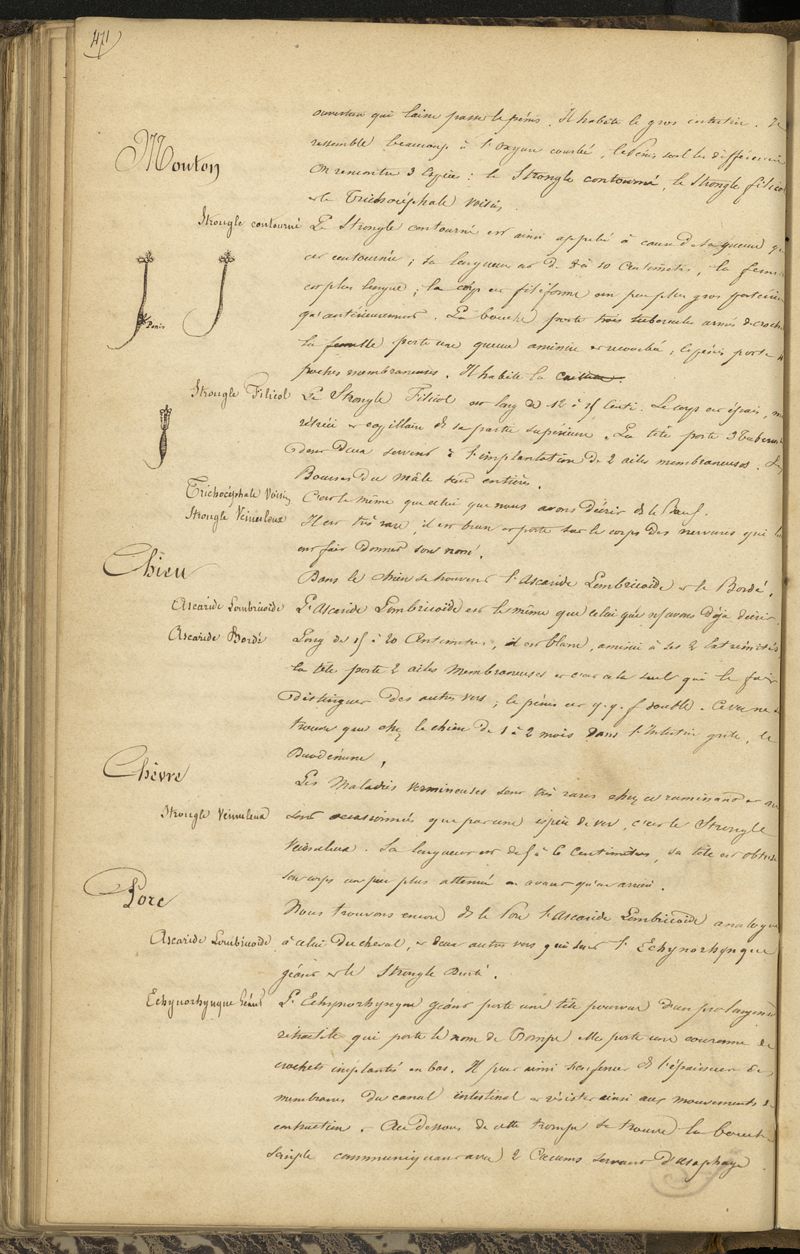 471
ouverture qui laisse passer le pénis. Il habite le gros intestin. Il
ressemble beaucoup à l'oxyure courbé, le pénis seul les différencie
Mouton
On rencontre 3 Espèces : le Strongle contourné, le Strongle filicol
et le Trichocéphale voisin.
Strongle contourné
Le Strongle contourné est ainsi appelé à cause de sa queue qui
est contournée ; sa longueur est de 8 à 10 Centimètres, la femelle
est plus longue ; le corps est filiforme un peu plus gros postérieu
qu'antérieurement. La bouche porte trois tubercules armés de crochets
Penis
la femelle porte une queue amincie et recourbée, le pénis porte
poches membraneuses. Il habite la
Strongle Filicol
Le Strongle Filicol est long de 12 à 15 Centi. Le corps est épais,
rétréci et capillaire ds sa partie supérieure. La tête porte 3 Tubercules
dont deux servent à l'implantation de 2 ailes membraneuses. Les
Bourses du mâle sont entières.
Trichocéphale Voisin
C'est le même que celui que nous avons décrit ds le Bœuf.
Strongle Veinuleux
Il est très rare, il est brun et porte sur le corps des nervures qui lui
ont fait donner son nom.
Chien
Dans le chien se trouvent l'Ascaride Lombricoïde et le Bordé.
Ascaride Lombricoïde
L'Ascaride Lombricoïde est le même que celui que n/avons déja décrit.
Ascaride Bordé
Long de 15 à 20 Centimètres, il est blanc, amincie à ses 2 Extrémités
la tête porte 2 ailes Membraneuses et c'est cela seul qui le fait
distinguer des autres vers ; le pénis est q.q.f double. Ce ver ne se
trouve que chez le chien de 1 à 2 mois dans l'Intestin grêle, le
Duodénum,
Chèvre
Les Maladies vermineuses sont très rares chez ce ruminant et ne
Strongle Veinuleux
sont occasionnées que par une espèce de ver, c'est le Strongle
Veinuleux. Sa longueur est de 5 à 6 Centimètres, sa tête est obtuse
son corps un peu plus atténué en avant qu'en arrière.
Porc
Nous trouvons encore ds le Porc l'Ascaride Lombricoïde analogue
Ascaride Lombricoïde
à celui du cheval, et deux autres vers qui sont l'Echynorhynque
géant et le Strongle Denté.
Echynorhynque Géant
L'Echynorhynque géant porte une tête pourvue d'un prolongement
rétractile qui porte le nom de Trompe. Elle porte une couronne de
crochets implantés en bas. Il peut ainsi s'enfoncer ds l'épaisseur des
membranes du canal intestinal et résister ainsi aux mouvements de
contraction. Au dessous de cette trompe se trouve la bouche
simple communiquant avec 2 Cœcums servant d'œsophage